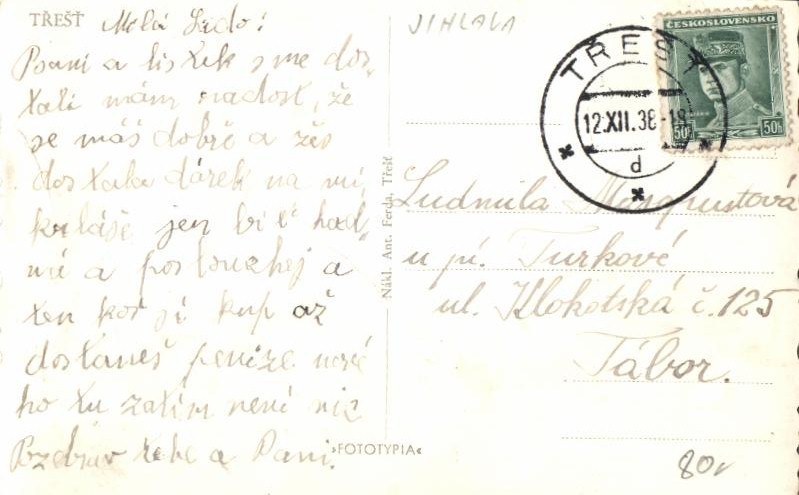 TŘEŠŤ
Milá Lido!
Psaní a lístek sme dos
tali mám radost, že
se máš dobře a žes
dostala dárek na mi
kuláše jen buť hod
ná a poslouchej a
ten koš si kup až
dostaneš peníze nové
ho tu zatím není nic
Pozdrav tebe a Paní.
Nákl. Ant. Ferda, Třešť
»FOTOTYPIA«
JIHLAVA
TŘEŠŤ
12.XII.38-18
d
ČESKOSLOVENSKO
50h 50h
Ludmila
u pí. Turkové
ul. Klokotská č. 125
Tábor.
80v